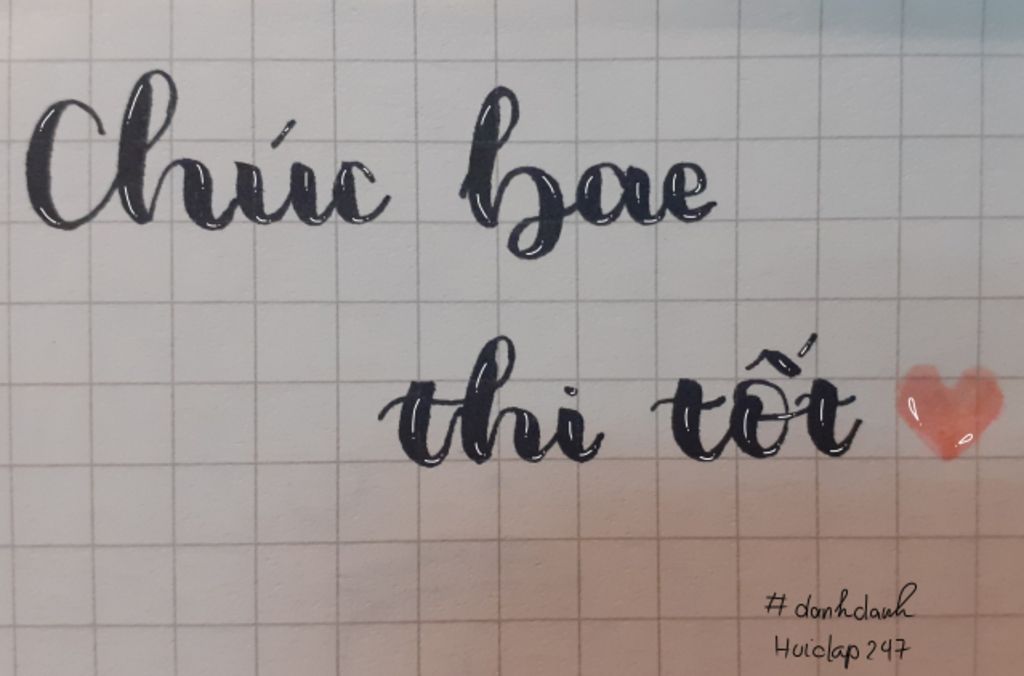 Chúc bae
thi tốt
#danhdanh
Huiclap247